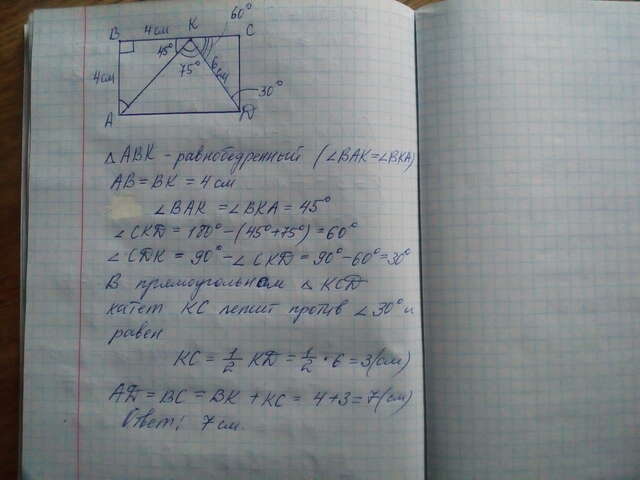 B 4см K 60° C
45°
4см 75° 6см 30°
A D
△ABK - равнобедренный (∠BAK=∠BKA)
AB=BK=4см
∠BAK=∠BKA=45°
∠CKD=180°-(45°+75°)=60°
∠CDK=90°-∠CKD=90°-60°=30°
В прямоугольном △KCD
катет KC лежит против ∠30° и
равен
KC=1/2 KD=1/2·6=3(см)
AD=BC=BK+KC=4+3=7(см)
Ответ: 7см.